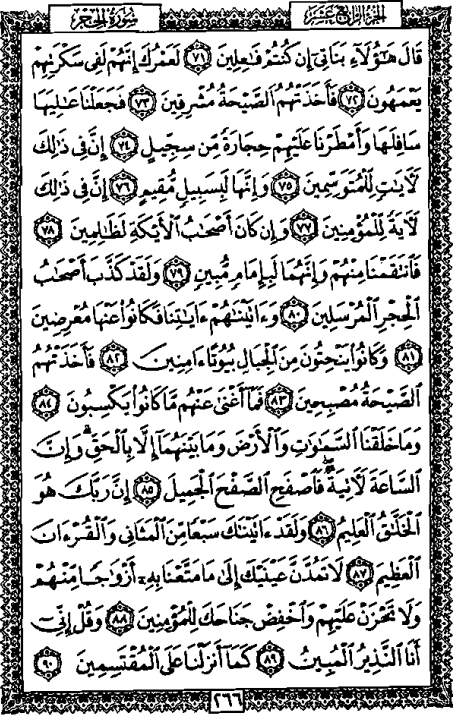 سورة الحجر
الجزء الرابع عشر
قَالَ هَٰؤُلَاءِ بَنَاتِي إِن كُنتُمْ فَاعِلِينَ ﴿٧١﴾ لَعَمْرُكَ إِنَّهُمْ لَفِي سَكْرَتِهِمْ
يَعْمَهُونَ ﴿٧٢﴾ فَأَخَذَتْهُمُ الصَّيْحَةُ مُشْرِقِينَ ﴿٧٣﴾ فَجَعَلْنَا عَالِيَهَا
سَافِلَهَا وَأَمْطَرْنَا عَلَيْهِمْ حِجَارَةً مِّن سِجِّيلٍ ﴿٧٤﴾ إِنَّ فِي ذَٰلِكَ
لَآيَاتٍ لِّلْمُتَوَسِّمِينَ ﴿٧٥﴾ وَإِنَّهَا لَبِسَبِيلٍ مُّقِيمٍ ﴿٧٦﴾ إِنَّ فِي ذَٰلِكَ
لَآيَةً لِّلْمُؤْمِنِينَ ﴿٧٧﴾ وَإِن كَانَ أَصْحَابُ الْأَيْكَةِ لَظَالِمِينَ ﴿٧٨﴾
فَانتَقَمْنَا مِنْهُمْ وَإِنَّهُمَا لَبِإِمَامٍ مُّبِينٍ ﴿٧٩﴾ وَلَقَدْ كَذَّبَ أَصْحَابُ
الْحِجْرِ الْمُرْسَلِينَ ﴿٨٠﴾ وَءَاتَيْنَاهُمْ ءَايَاتِنَا فَكَانُوا عَنْهَا مُعْرِضِينَ
﴿٨١﴾ وَكَانُوا يَنْحِتُونَ مِنَ الْجِبَالِ بُيُوتًا ءَامِنِينَ ﴿٨٢﴾ فَأَخَذَتْهُمُ
الصَّيْحَةُ مُصْبِحِينَ ﴿٨٣﴾ فَمَا أَغْنَىٰ عَنْهُم مَّا كَانُوا يَكْسِبُونَ ﴿٨٤﴾
وَمَا خَلَقْنَا السَّمَاوَاتِ وَالْأَرْضَ وَمَا بَيْنَهُمَا إِلَّا بِالْحَقِّ ۗ وَإِنَّ
السَّاعَةَ لَآتِيَةٌ ۖ فَاصْفَحِ الصَّفْحَ الْجَمِيلَ ﴿٨٥﴾ إِنَّ رَبَّكَ هُوَ
الْخَلَّاقُ الْعَلِيمُ ﴿٨٦﴾ وَلَقَدْ ءَاتَيْنَاكَ سَبْعًا مِّنَ الْمَثَانِي وَالْقُرْءَانَ
الْعَظِيمَ ﴿٨٧﴾ لَا تَمُدَّنَّ عَيْنَيْكَ إِلَىٰ مَا مَتَّعْنَا بِهِ أَزْوَاجًا مِّنْهُمْ
وَلَا تَحْزَنْ عَلَيْهِمْ وَاخْفِضْ جَنَاحَكَ لِلْمُؤْمِنِينَ ﴿٨٨﴾ وَقُلْ إِنِّي
أَنَا النَّذِيرُ الْمُبِينُ ﴿٨٩﴾ كَمَا أَنزَلْنَا عَلَى الْمُقْتَسِمِينَ ﴿٩٠﴾
٢٦٦